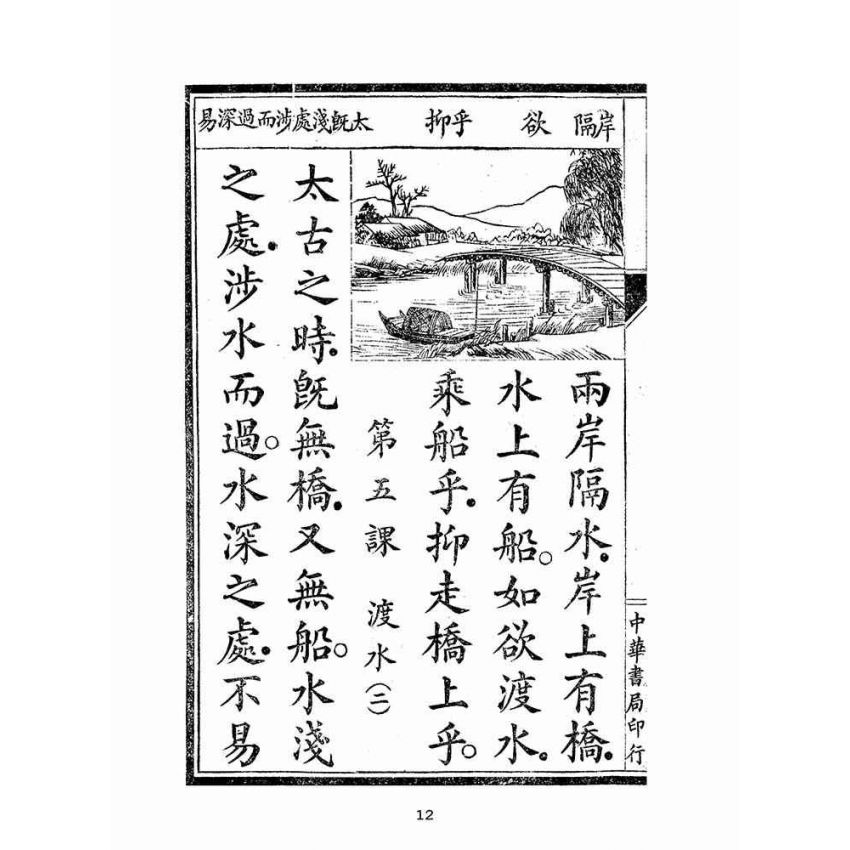 岸隔　欲　乎抑　太既淺處涉而過深易
兩岸隔水．岸上有橋．
水上有船。如欲渡水。
乘船乎．抑走橋上乎。
第五課　渡水（二）
太古之時．既無橋．又無船。水淺
之處．涉水而過。水深之處．不易
中華書局印行
12